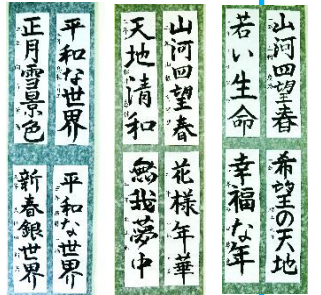 平和な世界
正月雪景色
平和な世界
新春銀世界
山河四望春
天地清和
花様年華
無我夢中
山河四望春
若い生命
希望の天地
幸福な年